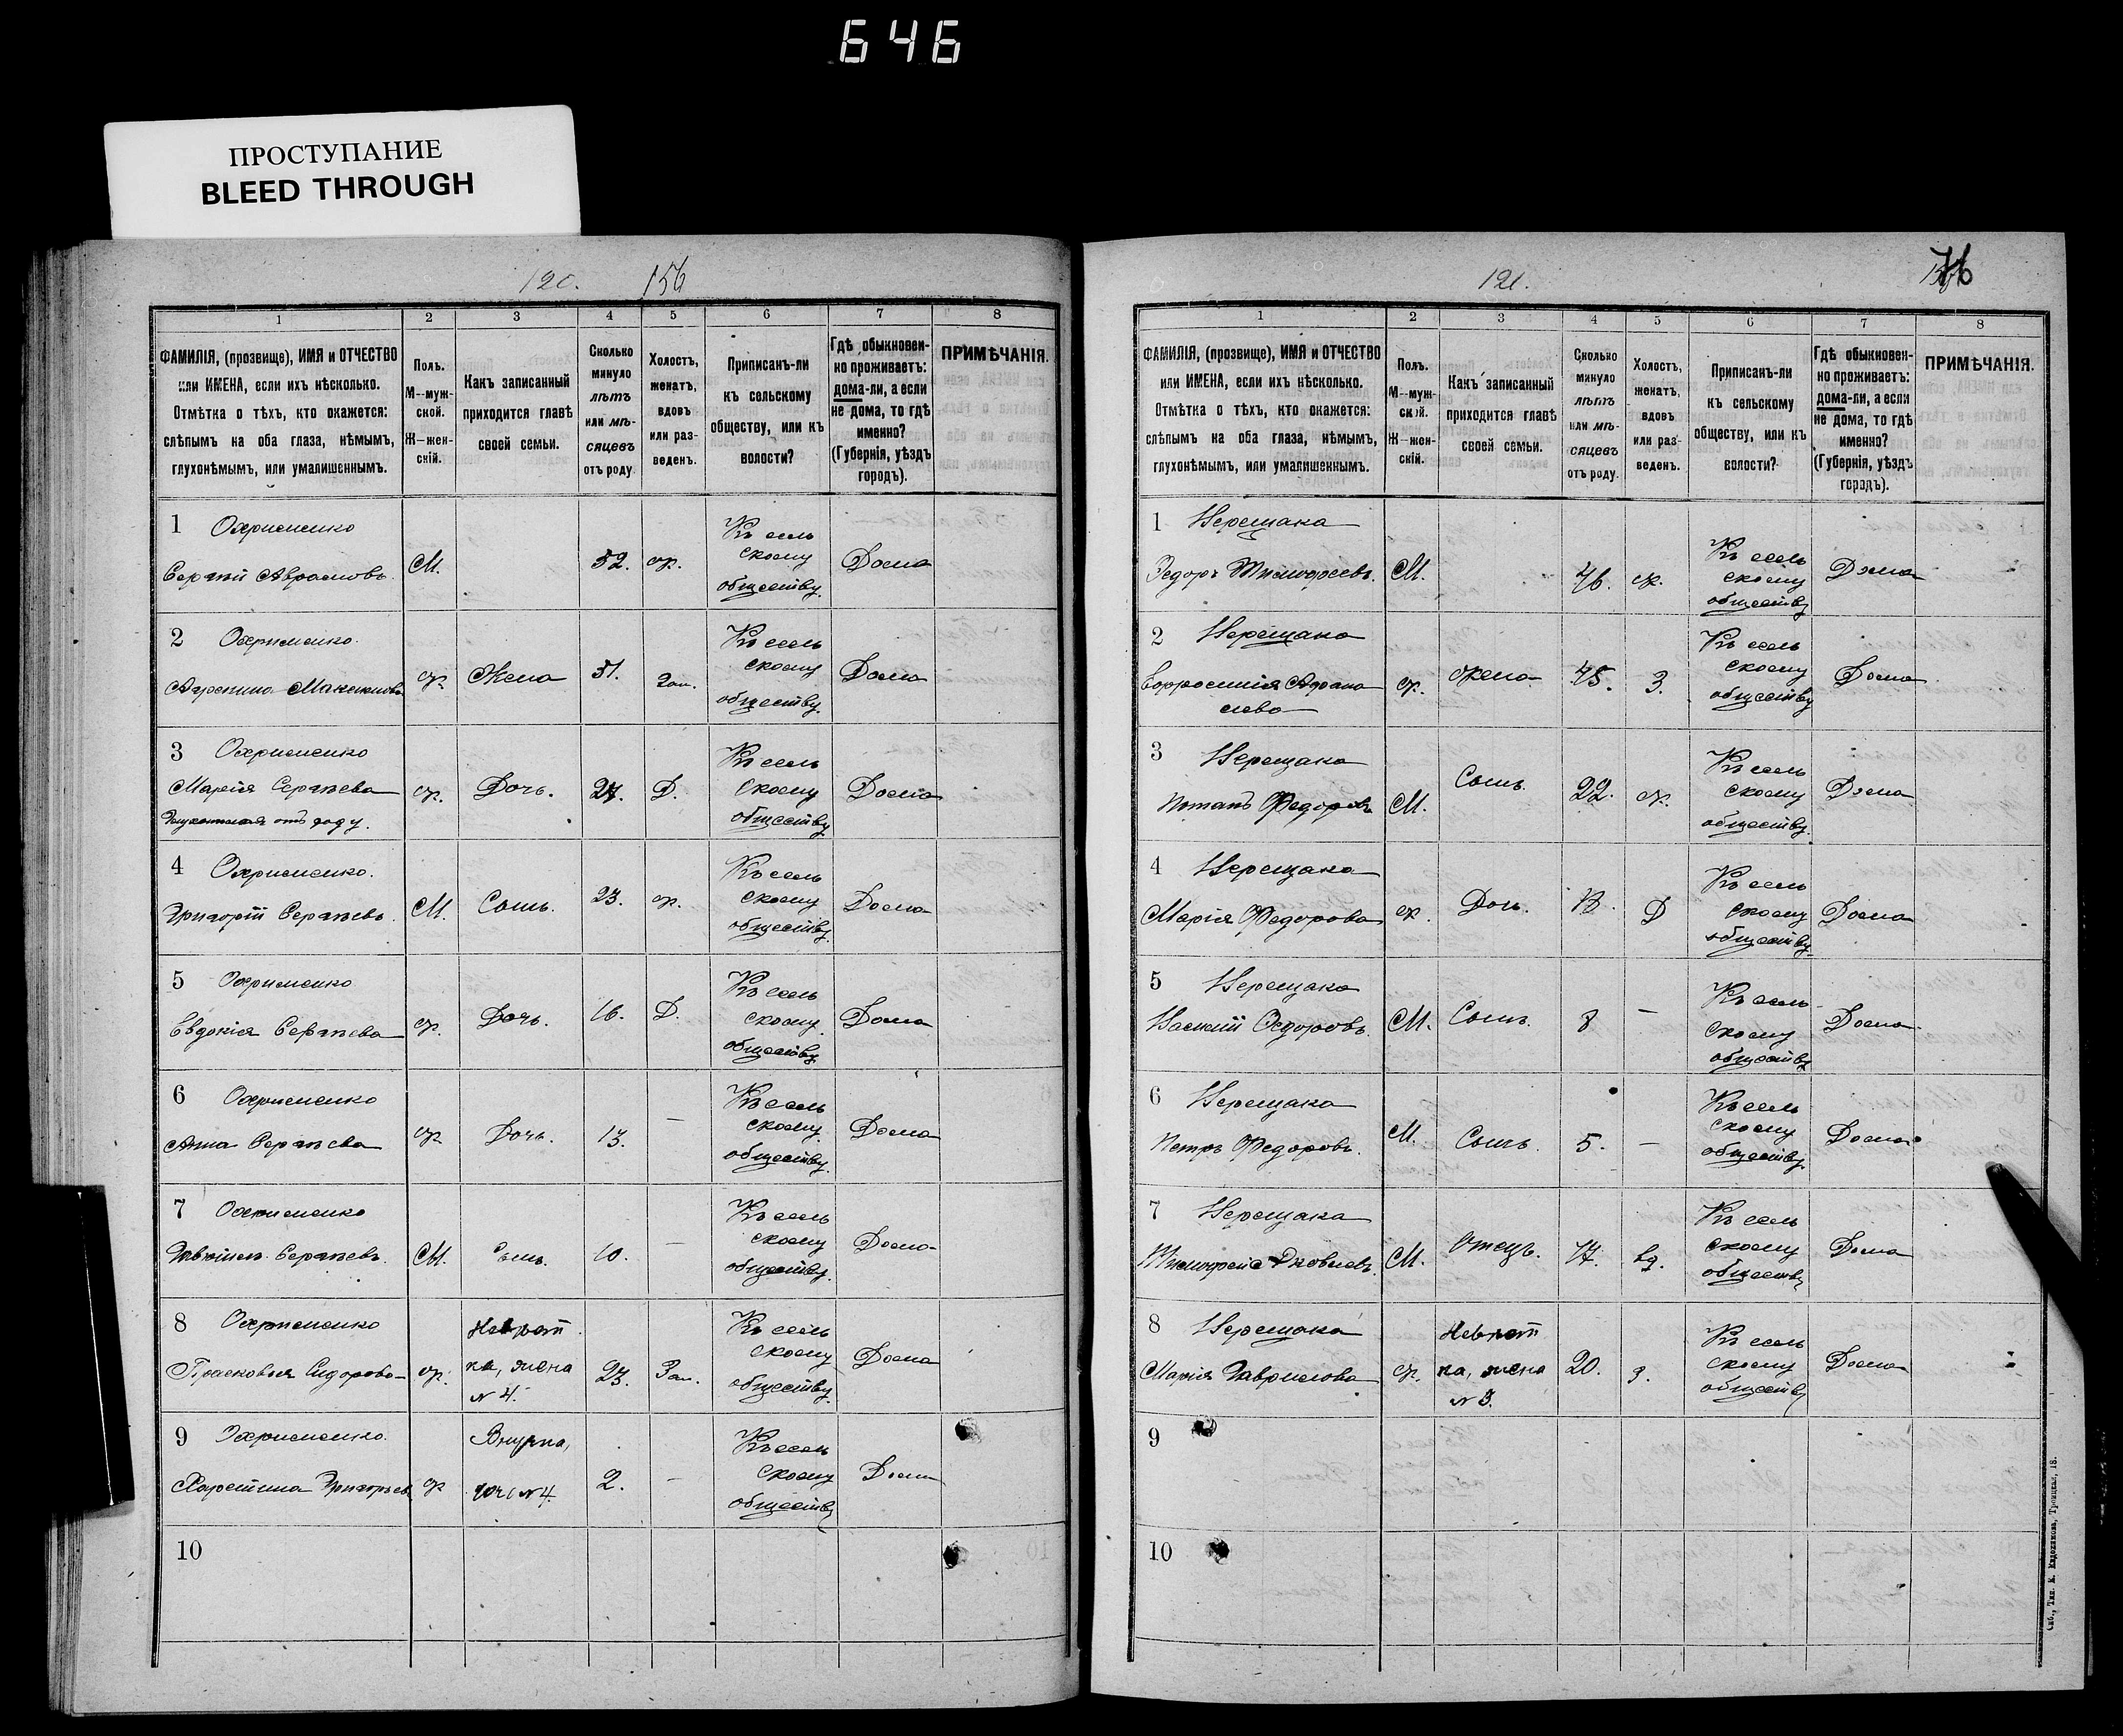 646
ПРОСТУПАНИЕ
BLEED THROUGH
120. 156
1 2 3 4 5 6 7 8
ФАМИЛІЯ, (прозвище), ИМЯ и ОТЧЕСТВО или ИМЕНА, если ихъ нѣсколько. Отмѣтка о тѣхъ, кто окажется: слѣпымъ на оба глаза, нѣмымъ, глухонѣмымъ, или умалишеннымъ.
Полъ. М—мужской. Ж—женскій.
Какъ записанный приходится главѣ своей семьи.
Сколько минуло лѣтъ или мѣсяцевъ отъ роду.
Холостъ, женатъ, вдовъ или разведенъ.
Приписанъ-ли къ сельскому обществу, или къ волости?
Гдѣ обыкновенно проживаетъ: дома-ли, а если не дома, то гдѣ именно? (Губернія, уѣздъ городъ).
ПРИМѢЧАНІЯ.
1 Охрименко
Сергѣй Аврамовъ. М. 52. ж. Къ сельскому обществу. Дома
2 Охрименко.
Агрепина Максимова ж. Жена 51. Зам. Къ сельскому обществу. Дома
3 Охрименко
Марія Сергѣева ж. Дочь. 27. Д. Къ сельскому обществу. Дома
отъ роду.
4 Охрименко.
Григорій Сергѣевъ. М. Сынъ. 23. ж. Къ сельскому обществу. Дома
5 Охрименко
Евдокія Сергѣева ж. Дочь. 16. Д. Къ сельскому обществу. Дома
6 Охрименко
Анна Сергѣева ж. Дочь. 13. — Къ сельскому обществу. Дома
7 Охрименко
Сергѣевъ. М. Сынъ. 10. — Къ сельскому обществу. Дома
8 Охрименко
Прасковья Сидорова ж. Невѣстка, жена №4. 23. Зам. Къ сельскому обществу. Дома
9 Охрименко.
Харетина Григорьев ж Внучка, дочь №4. 2. — Къ сельскому обществу Дома
10
121.
76
1 2 3 4 5 6 7 8
ФАМИЛІЯ, (прозвище), ИМЯ и ОТЧЕСТВО или ИМЕНА, если ихъ нѣсколько. Отмѣтка о тѣхъ, кто окажется: слѣпымъ на оба глаза, нѣмымъ, глухонѣмымъ, или умалишеннымъ.
Полъ. М—мужской. Ж—женскій.
Какъ записанный приходится главѣ своей семьи.
Сколько минуло лѣтъ или мѣсяцевъ отъ роду.
Холостъ, женатъ, вдовъ или разведенъ.
Приписанъ-ли къ сельскому обществу, или къ волости?
Гдѣ обыкновенно проживаетъ: дома-ли, а если не дома, то гдѣ именно? (Губернія, уѣздъ городъ).
ПРИМѢЧАНІЯ.
1 Нерещака
Федоръ Тимофеевъ. М. 46. ж. Къ сельскому обществу Дома
2 Нерещака
Евфросинія Афанасиева ж. жена 45. З. Къ сельскому обществу Дома
3 Нерещака
Потапъ Федоровъ М. Сынъ. 22. ж. Къ сельскому обществу. Дома
4 Нерещака
Марія Федорова ж. Доч. 13. Д Къ сельскому обществу. Дома
5 Нерещака
Василій Федоровъ. М. Сынъ. 8 — Къ сельскому обществу Дома
6 Нерещака
Петръ Федоровъ. М. Сынъ. 5. — Къ сельскому обществу. Дома
7 Нерещака
Тимофей Яковлевъ. М. Отецъ. 77. вд. Къ сельскому обществу Дома
8 Нерещака
Марія Гаврилова ж. Невѣстка, жена №3. 20. з. Къ сельскому обществу Дома
9
10
Спб., Тип. К. Евдокимова, Троицкая, 18.